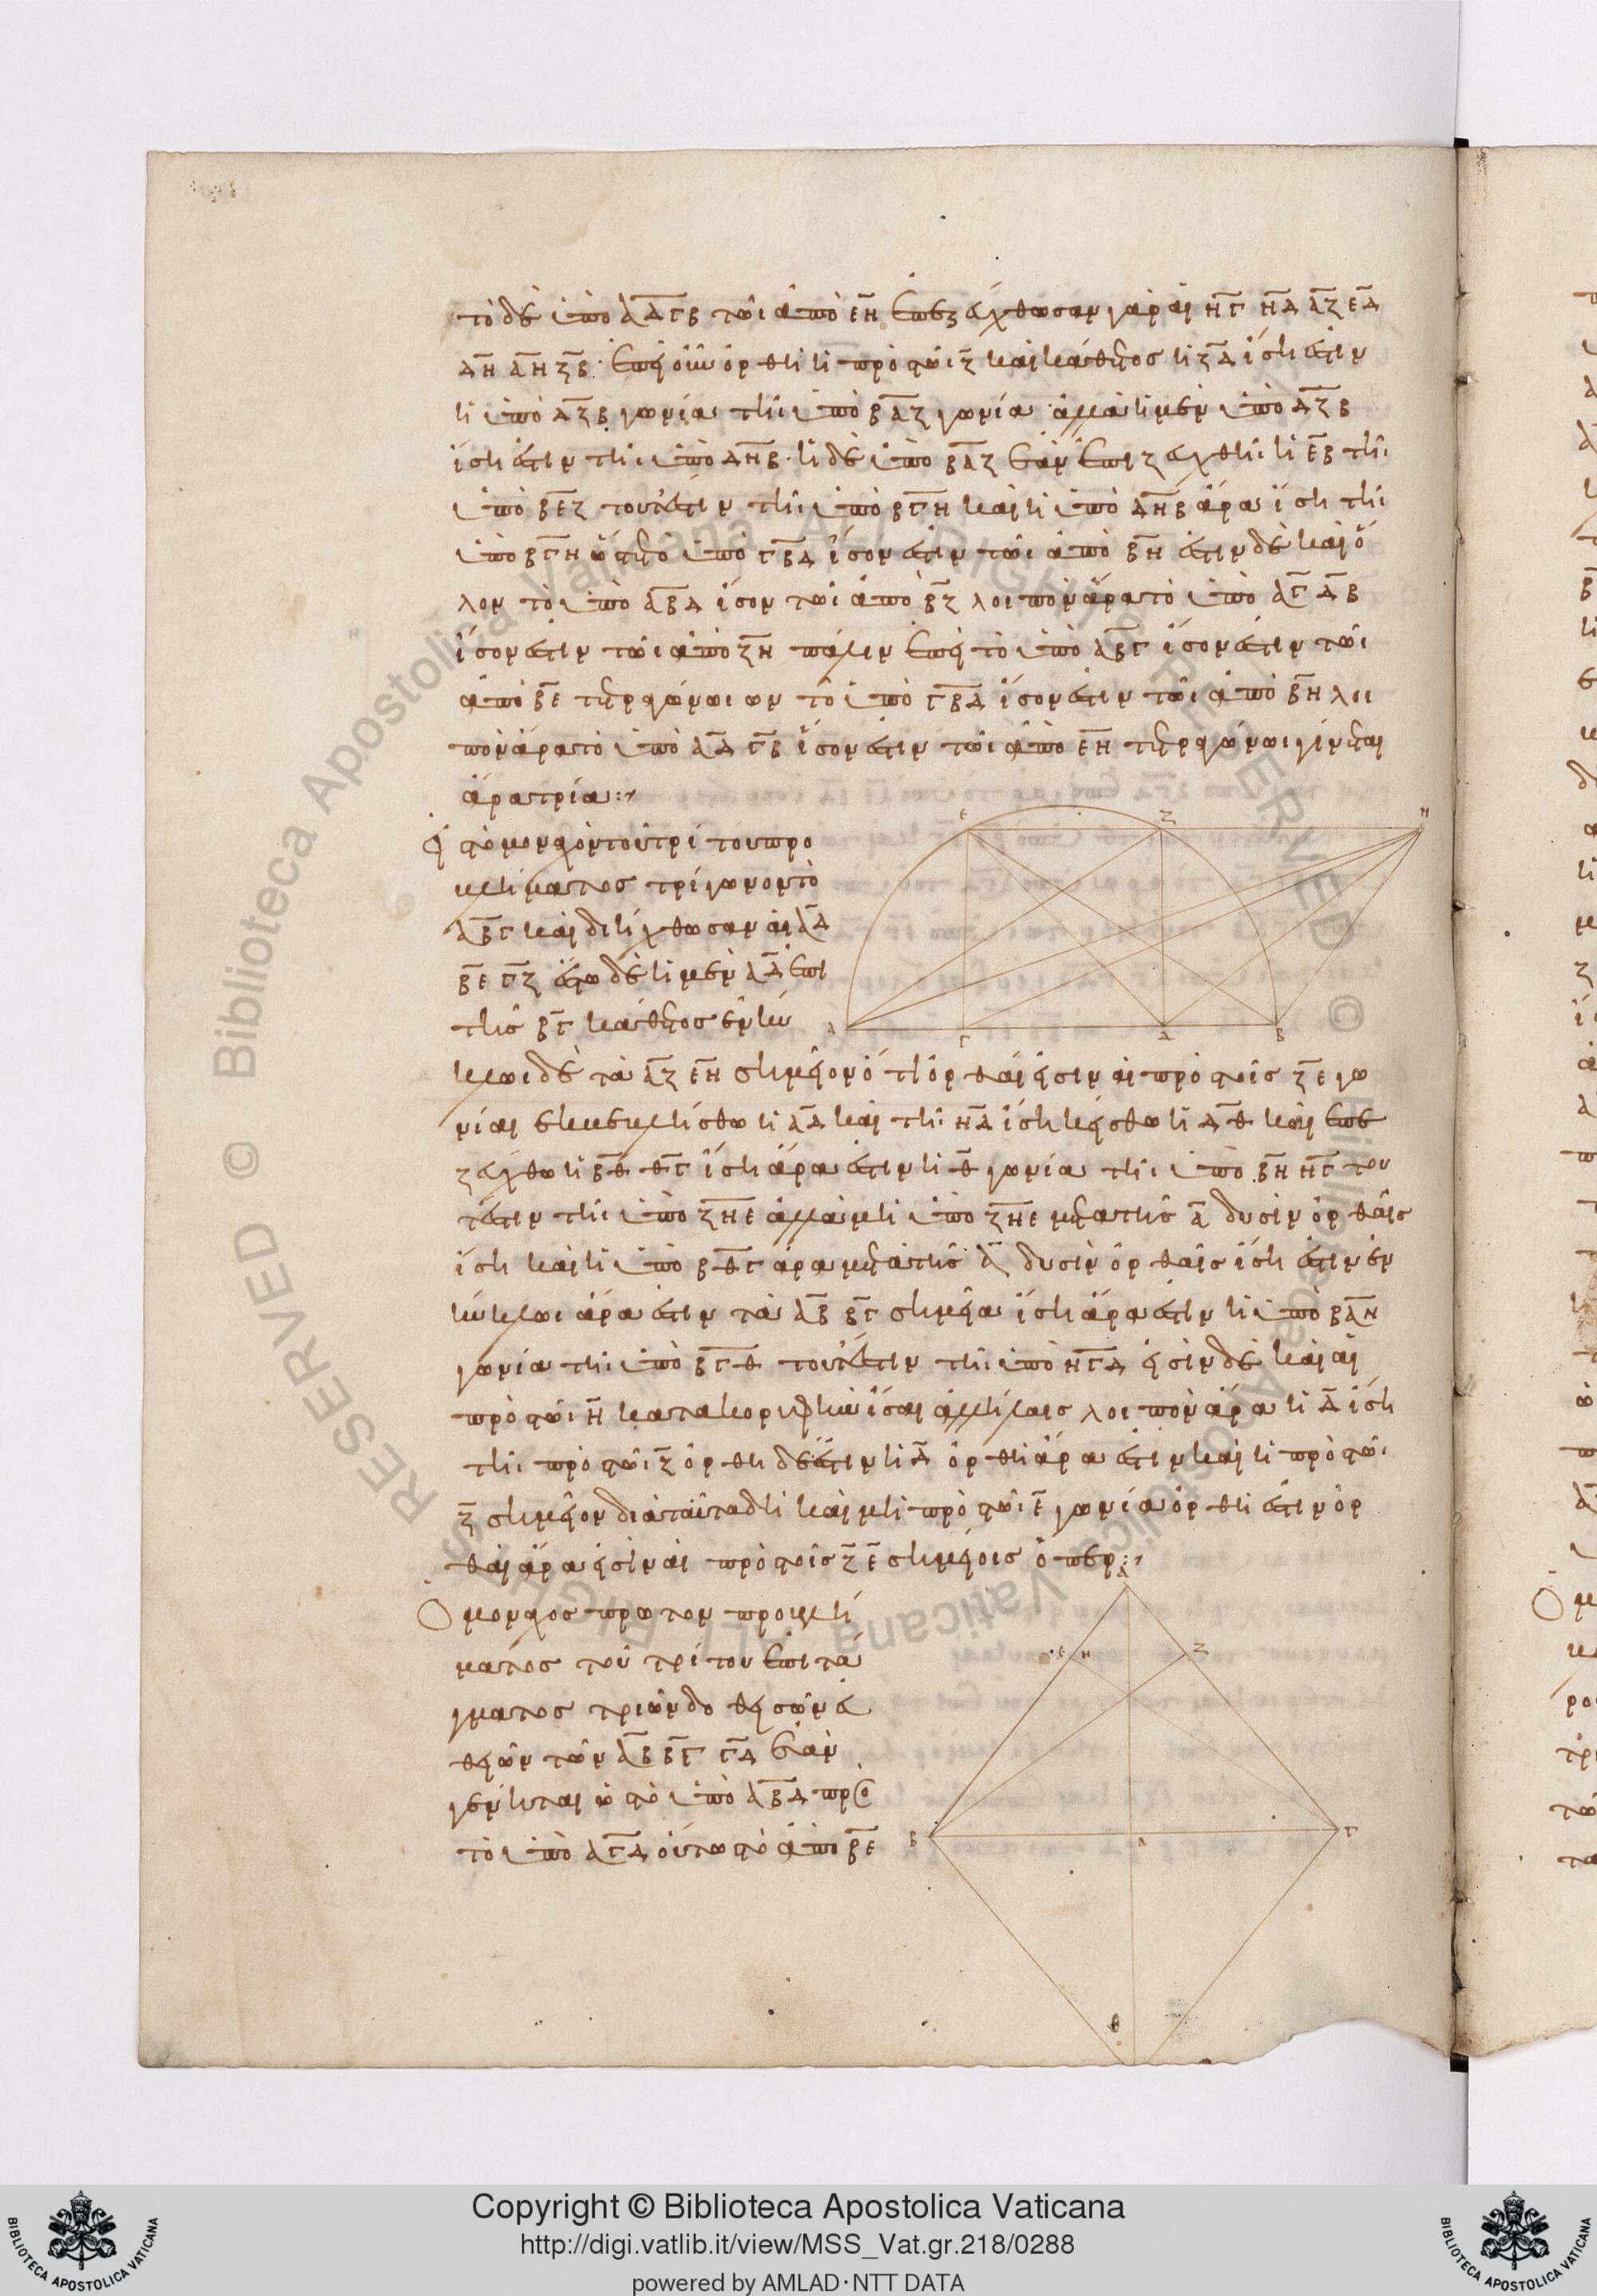 τὸ δὲ ὑπὸ ΑΔ ΓΒ τῶι ἀπὸ ΕΗ ἐπεζεύχθωσαν γὰρ αἱ ΗΓ ΗΔ ΑΖ ΕΔ
ΔΗ ΑΗ ΖΒ ἐπεὶ οὖν ὀρθὴ ἡ πρὸς τῶι Ζ καὶ κάθετος ἡ ΖΔ ἴση ἐστὶν
ἡ ὑπὸ ΔΖΒ γωνία τῆι ὑπὸ ΒΑΖ γωνία ἀλλὰ ἡ μὲν ὑπὸ ΔΖΒ
ἴση ἐστὶν τῆι ὑπὸ ΔΗΒ ἡ δὲ ὑπὸ ΒΑΖ ἐὰν ἐπιζευχθῆι ἡ ΕΒ τῆι
ὑπὸ ΒΕΖ τουτέστιν τῆι ὑπὸ ΒΓΗ καὶ ἡ ὑπὸ ΔΗΒ ἄρα ἴση τῆι
ὑπὸ ΒΓΗ ὥστε τὸ ὑπὸ ΓΒΔ ἴσον ἐστὶν τῶι ἀπὸ ΒΗ ἐστὶν δὲ καὶ ὅ
λον τὸ ὑπὸ ΑΒΔ ἴσον τῶι ἀπὸ ΒΖ λοιπὸν ἄρα τὸ ὑπὸ ΑΓ ΔΒ
ἴσον ἐστὶν τῶι ἀπὸ ΖΗ πάλιν ἐπεὶ τὸ ὑπὸ ΑΒΓ ἴσον ἐστὶν τῶι
ἀπὸ ΒΕ τετραγώνωι ὧν τὸ ὑπὸ ΓΒΔ ἴσον ἐστὶν τῶι ἀπὸ ΒΗ λοι
πὸν ἄρα τὸ ὑπὸ ΑΔ ΓΒ ἴσον ἐστὶν τῶι ἀπὸ ΕΗ τετραγώνωι γίνεται
ἄρα τρία
τόμον τὸν τοῦ τρίτου προ
λήμματος τρίγωνον τὸ
ΑΒΓ καὶ διήχθωσαν αἱ ΑΔ
ΒΕ ΓΖ ἔστω δὲ ἡ μὲν ΑΔ ἐπὶ
τῆς ΒΓ κάθετος ἐν κύ
κλωι δὲ τὰ ΑΖ ΕΗ σημεῖον ὅτι ὀρθαί εἰσιν αἱ πρὸς τοῖς Ζ Ε γω
νίαι ἐκβεβλήσθω ἡ ΑΔ καὶ τῆι ΗΔ ἴση κείσθω ἡ ΔΘ καὶ ἐπε
ζεύχθω ἡ ΒΘ ΘΓ ἴση ἄρα ἐστὶν ἡ Θ γωνία τῆι ὑπὸ ΒΗ ΗΓ του
τέστιν τῆι ὑπὸ ΖΗΕ ἀλλὰ μὴ ὑπὸ ΖΗΕ μετὰ τῆς Α δυσὶν ὀρθαῖς
ἴση καὶ ἡ ὑπὸ ΒΘΓ ἄρα μετὰ τῆς Α δυσὶν ὀρθαῖς ἴση ἐστὶν ἐν
κύκλωι ἄρα ἐστὶν τὰ ΑΒ ΒΓ σημεῖα ἴση ἄρα ἐστὶν ἡ ὑπὸ ΒΑΗ
γωνία τῆι ὑπὸ ΒΓΘ τουτέστιν τῆι ὑπὸ ΗΓΔ εἰσὶν δὲ καὶ αἱ
πρὸς τῶι Η κατα κορυφὴν ἴσαι ἀλλήλαις λοιπὸν ἄρα ἡ Δ ἴση
τῆι πρὸς τῶι Ζ ὀρθὴ δέ ἐστιν ἡ Δ ὀρθὴ ἄρα ἐστὶν καὶ ἡ πρὸς τῶι
Ζ σημεῖον διὰ ταῦτα δὴ καὶ μὴ πρὸς τῶι Ε γωνία ὀρθὴ ἐστὶν ὀρ
θαὶ ἄρα εἰσὶν αἱ πρὸς τοῖς Ζ Ε σημείοις ὅπερ
Ε Ζ Η
Α Γ Δ Β
μον τος πρῶτον προλή
ματος τοῦ τρίτου ἐπιτά
γματος τριῶν δοθεισῶν εὐ
θειῶν τῶν ΑΒ ΒΓ ΓΔ ἐὰν
γένηται ὡς τὸ ὑπὸ ΑΒΔ πρὸς
τὸ ὑπὸ ΑΓΔ οὕτω τὸ ἀπὸ ΒΕ
Α
Ε Η Ζ
Β Δ Γ
Θ
Copyright © Biblioteca Apostolica Vaticana
http://digi.vatlib.it/view/MSS_Vat.gr.218/0288
powered by AMLAD·NTT DATA
BIBLIOTECA APOSTOLICA VATICANA
BIBLIOTECA APOSTOLICA VATICANA